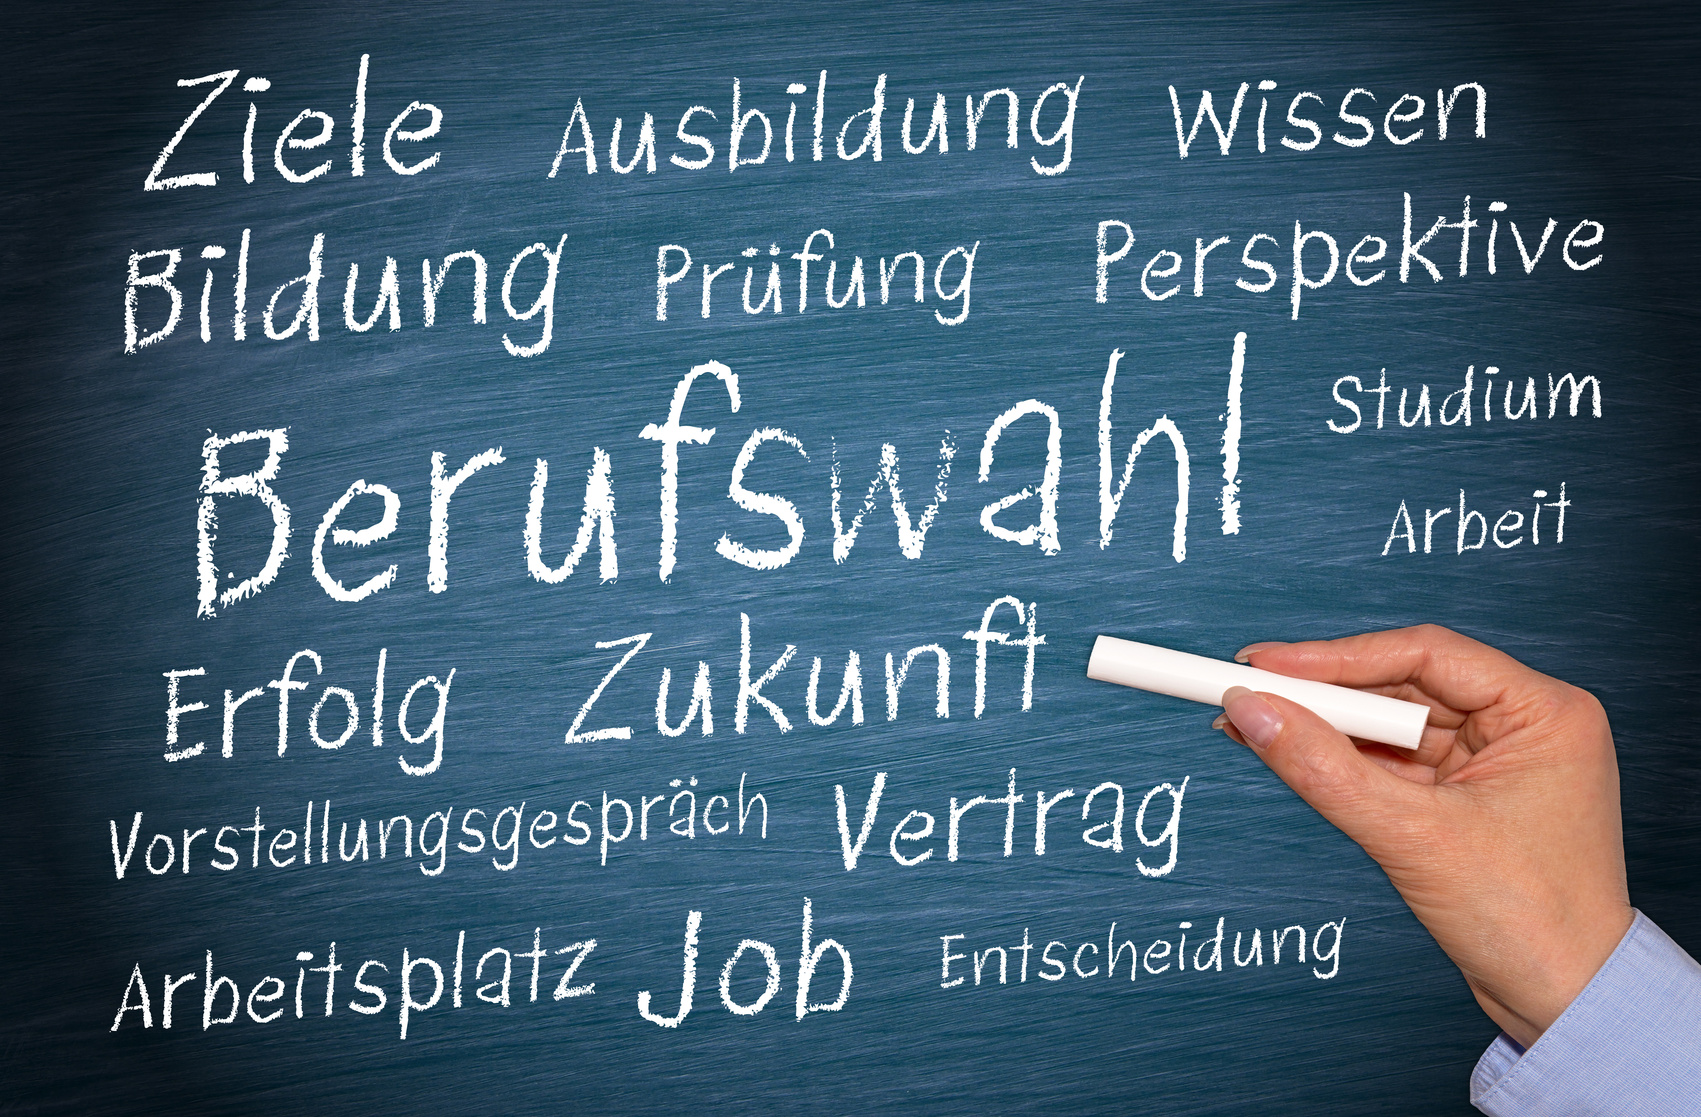 Ziele Ausbildung Wissen
Bildung Prüfung Perspektive
Berufswahl Studium
Arbeit
Erfolg Zukunft
Vorstellungsgespräch Vertrag
Arbeitsplatz Job Entscheidung